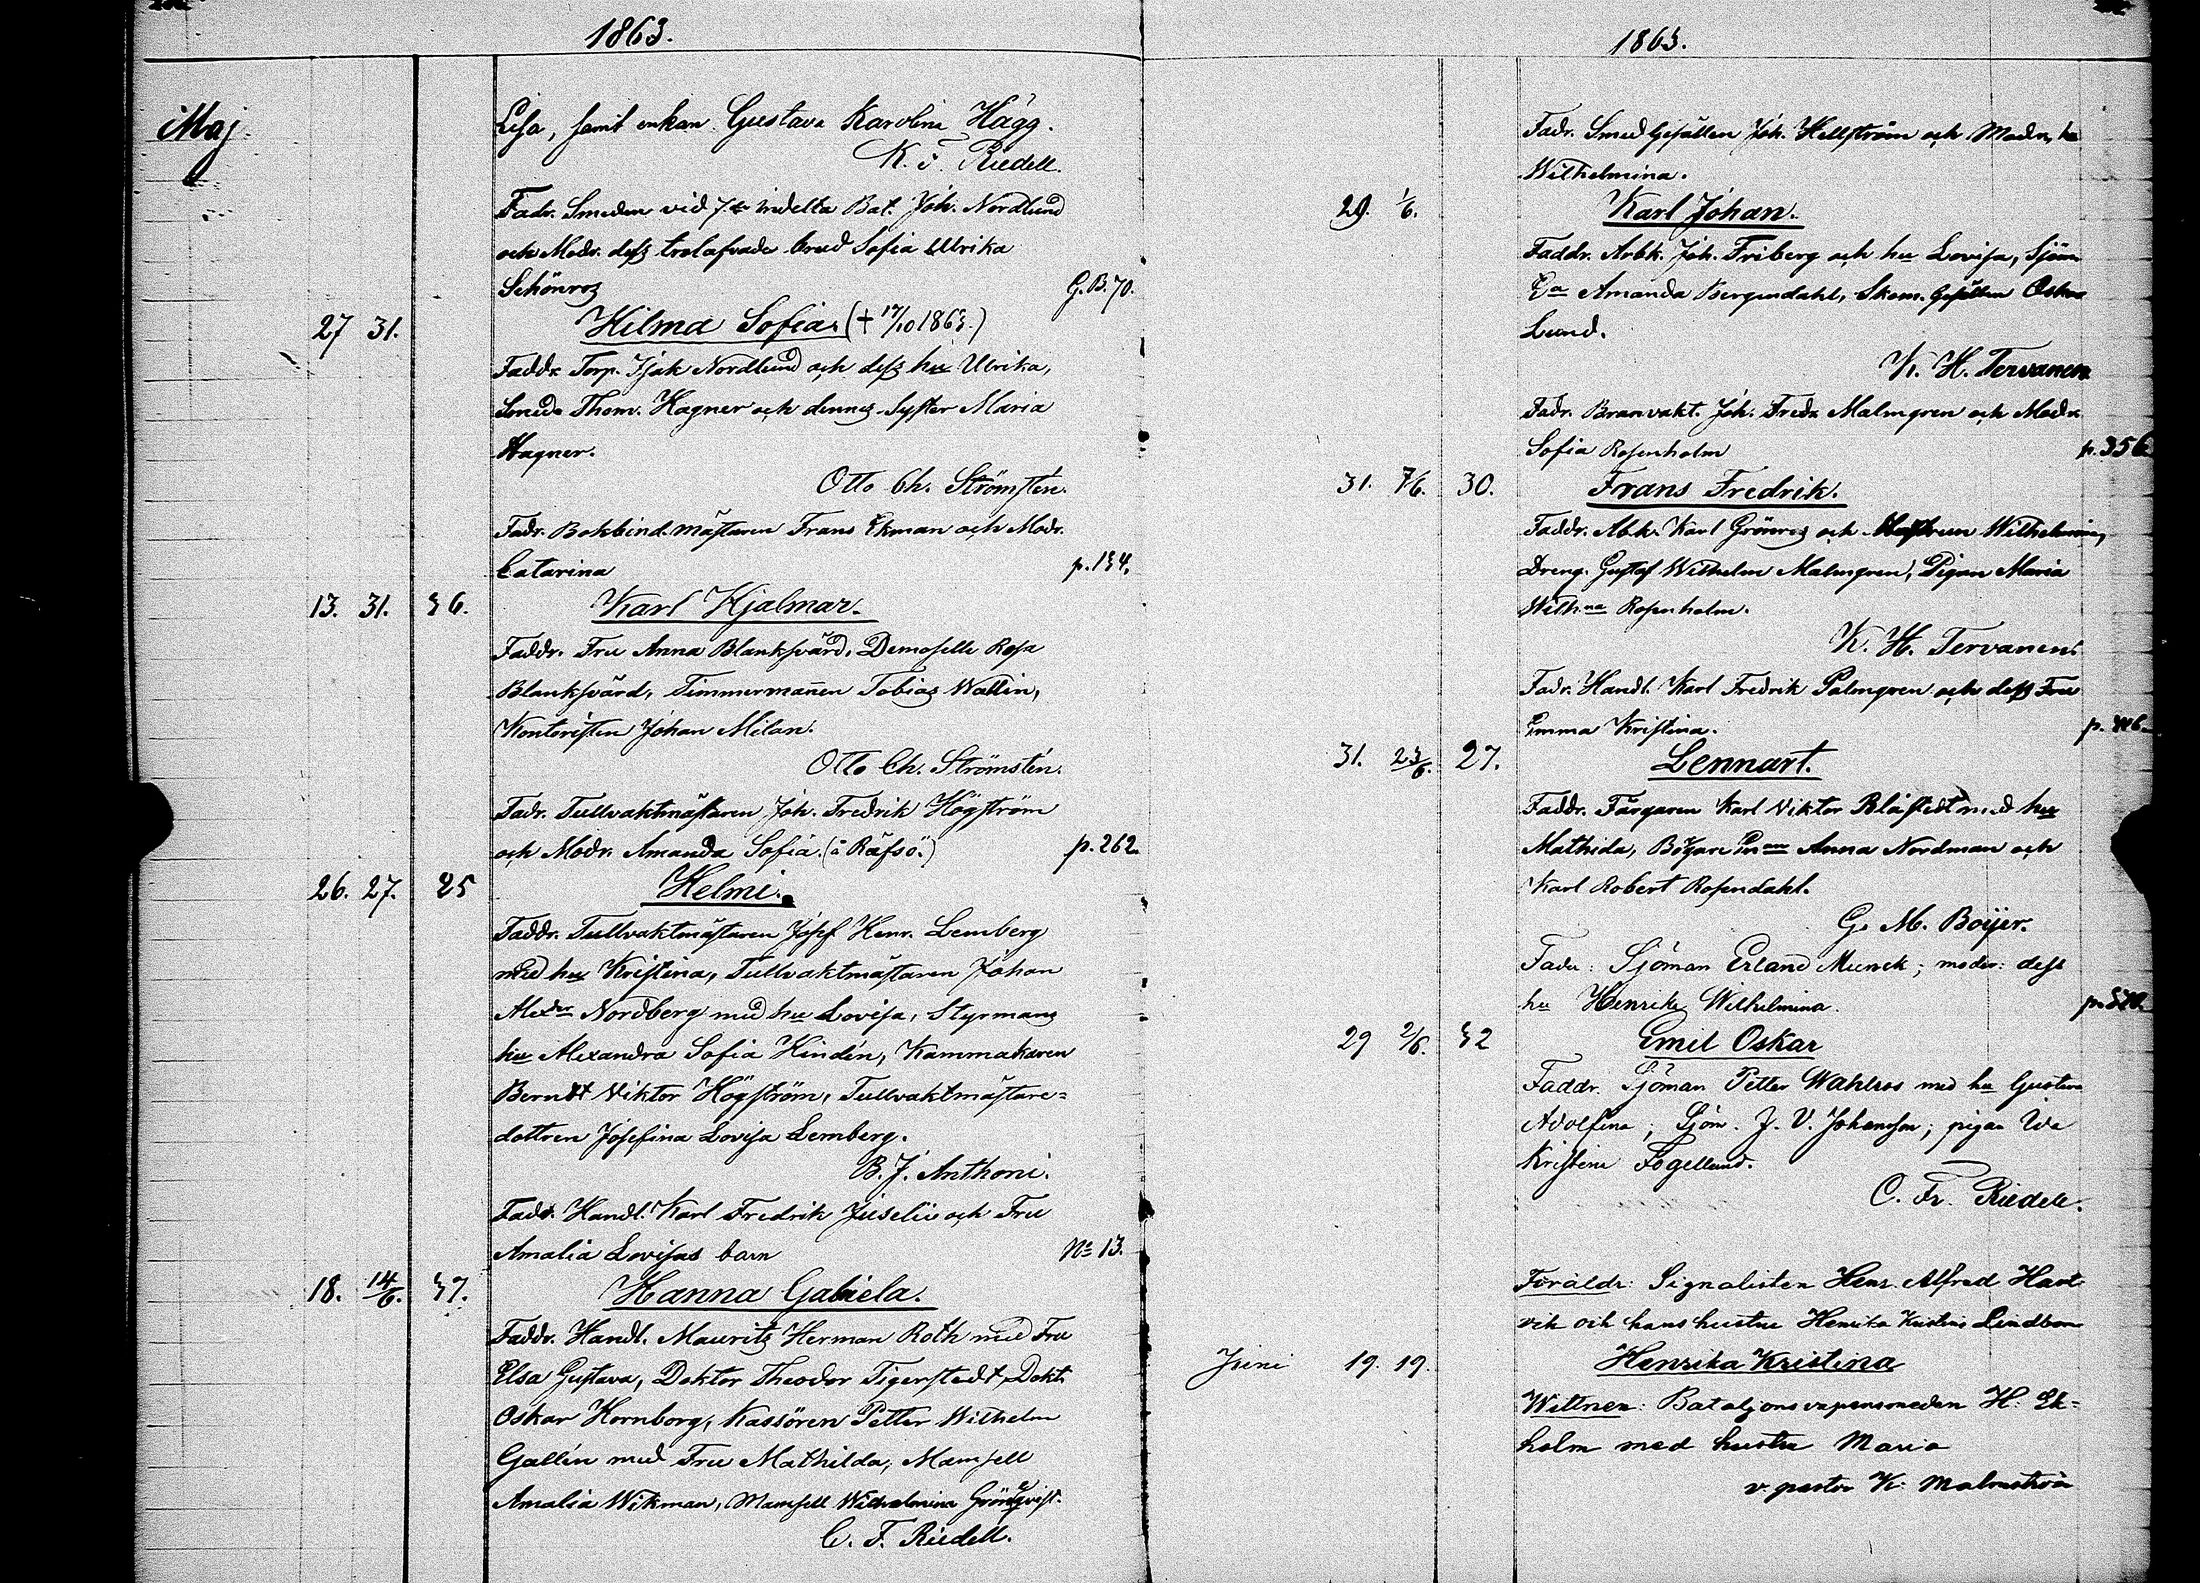 1863.
Maj
Lisa, samt enkan Gustava Karolina Hägg.
K. F. Riedell.
Fadr. Smeden vid 7. indelta Bat. Joh. Nordlund
och Modr. dess trolofvade brud Sofia Ulrika
Schönroz G.B. 70.
27 31. Hilma Sofia (+ 17/10 1863.)
Faddr. Torp. Isak Nordlund och dess hu Ulrika,
Smeds Thom. Hagner och dennes Syster Maria
Hagner.
Otto Ch. Strömsten.
Fadr. Bokbind.mästaren Frans Ekman och Modr.
Catarina p. 134.
13. 31. 36. Karl Hjalmar.
Faddr. Fru Anna Blanksvärd, Demoselle Rosa
Blanksvärd, Timmermannen Tobias Wallin,
Kontoristen Johan Milan.
Otto Ch. Strömstén.
Fadr. Tullvaktmästaren Joh. Fredrik Högström
och Modr. Amanda Sofia. (å Räfsö.) p. 262
26. 27. 25 Helmi.
Faddr. Tullvaktmästaren Josef Henr. Lemberg
med hu Kristina, Tullvaktmästaren Johan
Alexdr Nordberg med hu Lovisa, Styrmans
hu Alexandra Sofia Hindén, Kammakaren
Berndt Viktor Högström, Tullvaktmästare=
dottren Josefina Lovisa Lemberg.
B. J. Anthoni.
Fadr. Handl. Karl Fredrik Juselius och Fru
Amalia Lovisas barn No 13.
18. 14/6. 37. Hanna Gabriela.
Faddr. Handl. Mauritz Herman Roth med Fru
Elsa Gustava, Doktor Theodor Tigerstedt, Dokt.
Oskar Hornborg, Kassören Petter Wilhelm
Gallén med Fru Mathilda, Mamsell
Amalia Wikman, Mamsell Wilhelmina Grönqvist.
C. F. Riedell.
1863.
Fadr. Smed Gesällen Joh. Hellström och Modr. hu
Wilhelmina.
29. 1/6. Karl Johan.
Faddr. Arbk. Joh. Friberg och hu Lovisa, Sjöm.
Amanda Bergendahl, Skom. Gesällen Oskar
Lund.
K. H. Tervanen
Fadr. Branvakt. Joh. Fredr. Malmgren och Modr.
Sofia Rosenholm p. 356.
31. 7/6. 30. Frans Fredrik.
Faddr. Abk. Karl Grönroz och Hustrun Wilhelmina,
Dreng. Gustaf Wilhelm Malmgren, Pigan Maria
Wilh:na Rosenholm.
K. H. Tervanen.
Fadr. Handl. Karl Fredrik Palmgren och dess Fru
Emma Kristina.
31. 23/6. 27. Lennart.
Faddr. Färgaren Karl Viktor Blåfield med hu
Mathida, Anna Nordman och
Karl Robert Rosendahl.
G. M. Boijer.
Fader: Sjöman Erland Munck; moder: dess
hu Henrika Wilhelmina.
29 2/6. 32 Emil Oskar
Faddr. Sjöman Petter Wahlros med hu Gustava
Adolfina; Sjöm. J. V. Johansson; pigan Ida
Kristina Fogellund.
C. Fr. Riedell.
Föräldr: Signalisten Henr. Alfred Hart-
vik och hans hustru Henrika Kristina Lindbom
Juni 19. 19. Henrika Kristina
Wittnen: Bataljonsvapensmeden H. Ek=
holm med hustru Maria
v. pastor K. Malmström